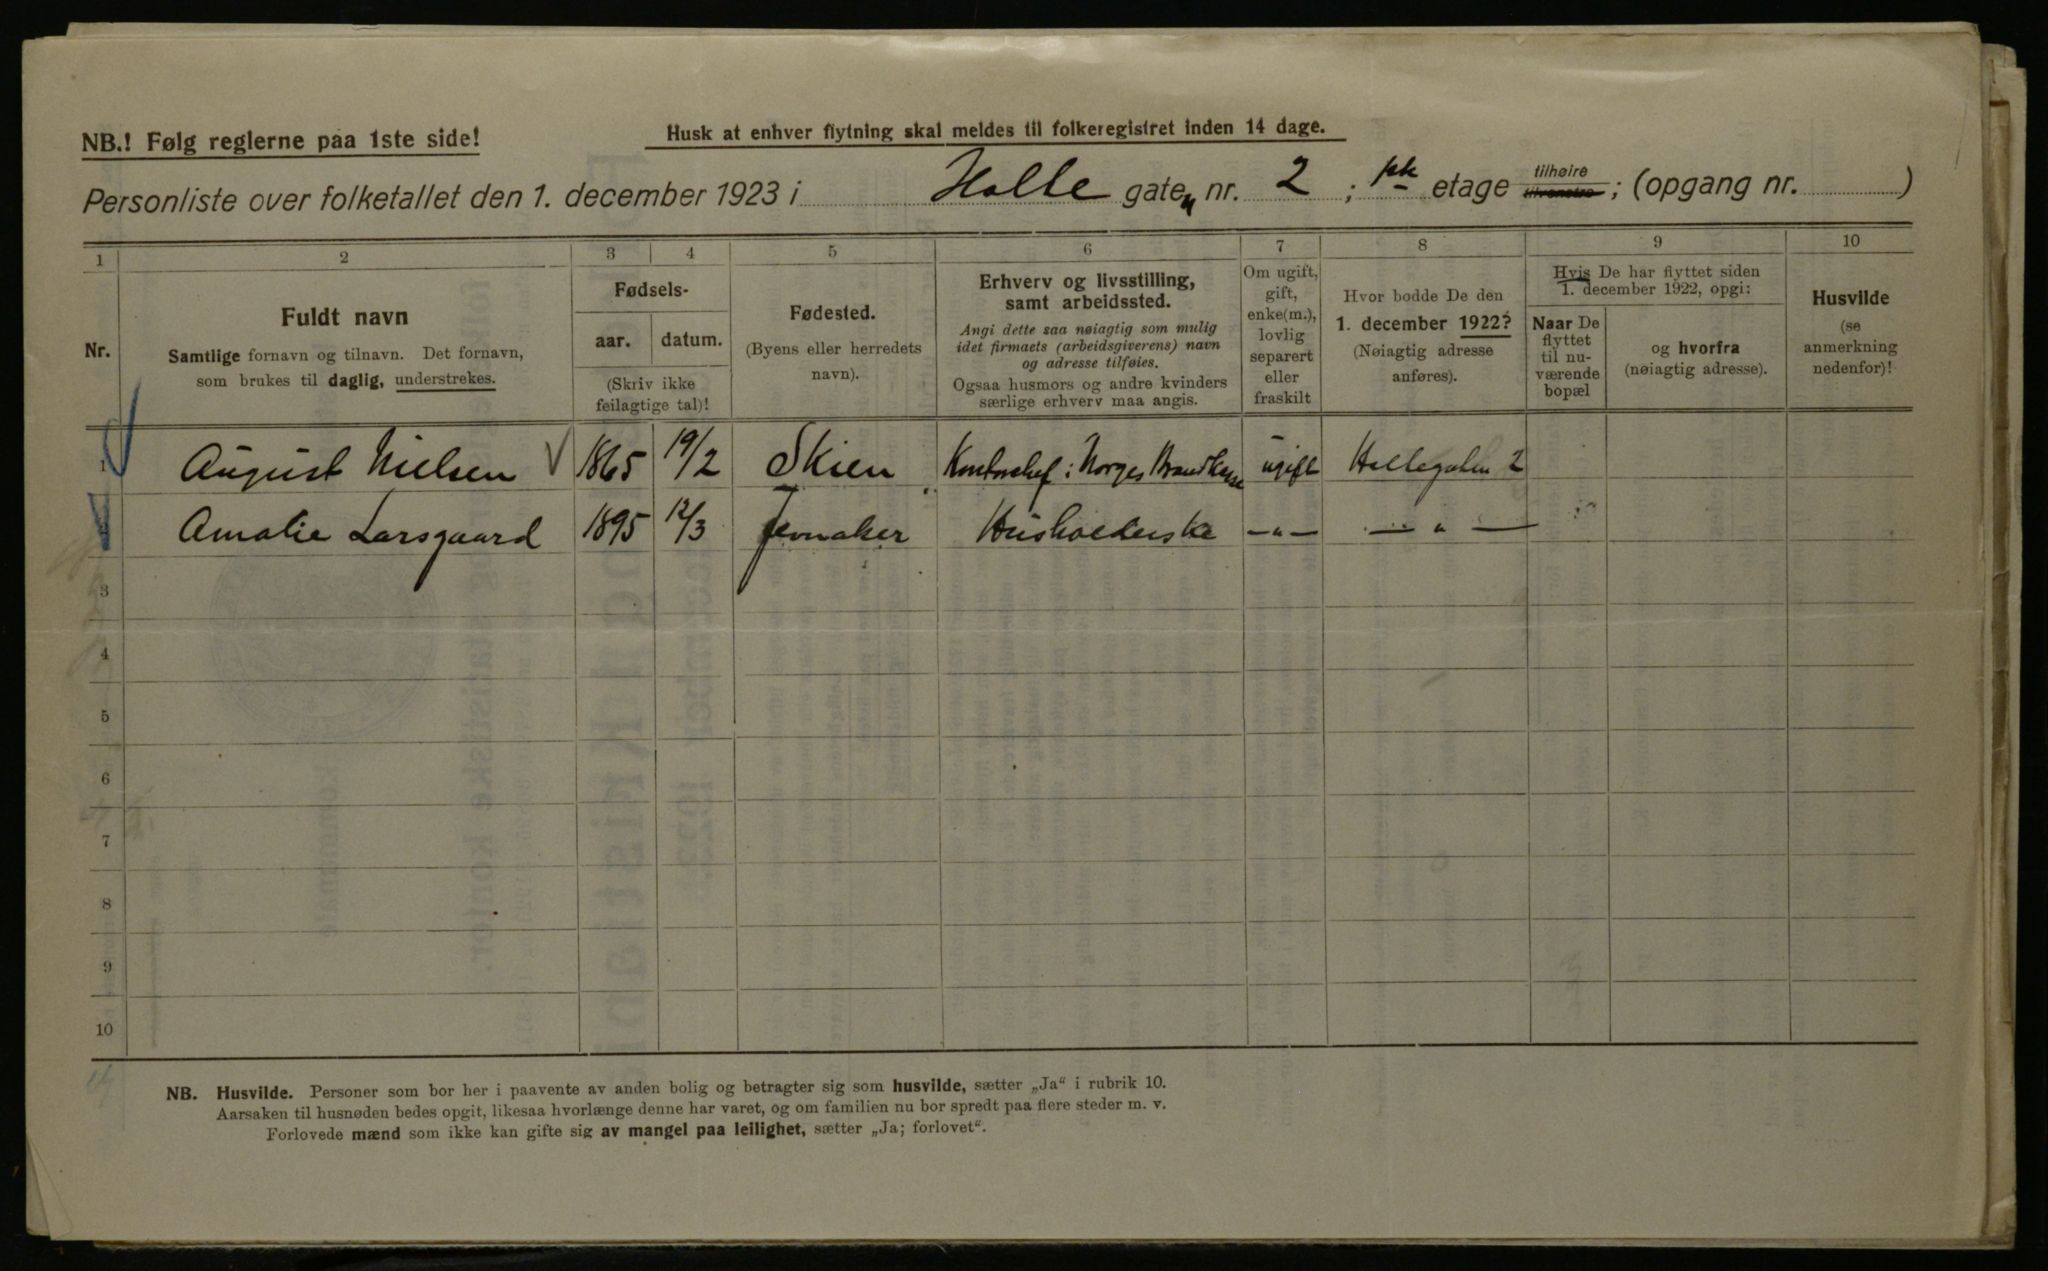 NB.! Følg reglerne paa 1ste side!
Husk at enhver flytning skal meldes til folkeregistret inden 14 dage.
Personliste over folketallet den 1. december 1923 i Holte gaten nr. 2 ; etage tilhøire tilvenstre ; (opgang nr. )
1 2 3 4 5 6 7 8 9 10
Nr.
Fuldt navn
Samtlige fornavn og tilnavn. Det fornavn,
som brukes til daglig, understrekes.
Fødsels-
aar. datum.
(Skriv ikke
feilagtige tal)!
Fødested.
(Byens eller herredets
navn).
Erhverv og livsstilling,
samt arbeidssted.
Angi dette saa nøiagtig som mulig
idet firmaets (arbeidsgiverens) navn
og adresse tilføies.
Ogsaa husmors og andre kvinders
særlige erhverv maa angis.
Om ugift,
gift,
enke(m.),
lovlig
separert
eller
fraskilt
Hvor bodde De den
1. december 1922?
(Nøiagtig adresse
anføres).
Hvis De har flyttet siden
1. december 1922, opgi:
Naar De
flyttet
til nu-
værende
bopæl
og hvorfra
(nøiagtig adresse).
Husvilde
(se
anmerkning
nedenfor)!
1 August Nielsen 1865 19/2 Skien Kontorchef i Norges Brandkasse ugift Holtegaten 2
2 Amalie Larsgaard 1895 12/3 Jevnaker Husholderske —„— — „ —
3
4
5
6
7
8
9
10
NB. Husvilde. Personer som bor her i paavente av anden bolig og betragter sig som husvilde, sætter „Ja“ i rubrik 10.
Aarsaken til husnøden bedes opgit, likesaa hvorlænge denne har varet, og om familien nu bor spredt paa flere steder m. v.
Forlovede mænd som ikke kan gifte sig av mangel paa leilighet, sætter „Ja; forlovet“.